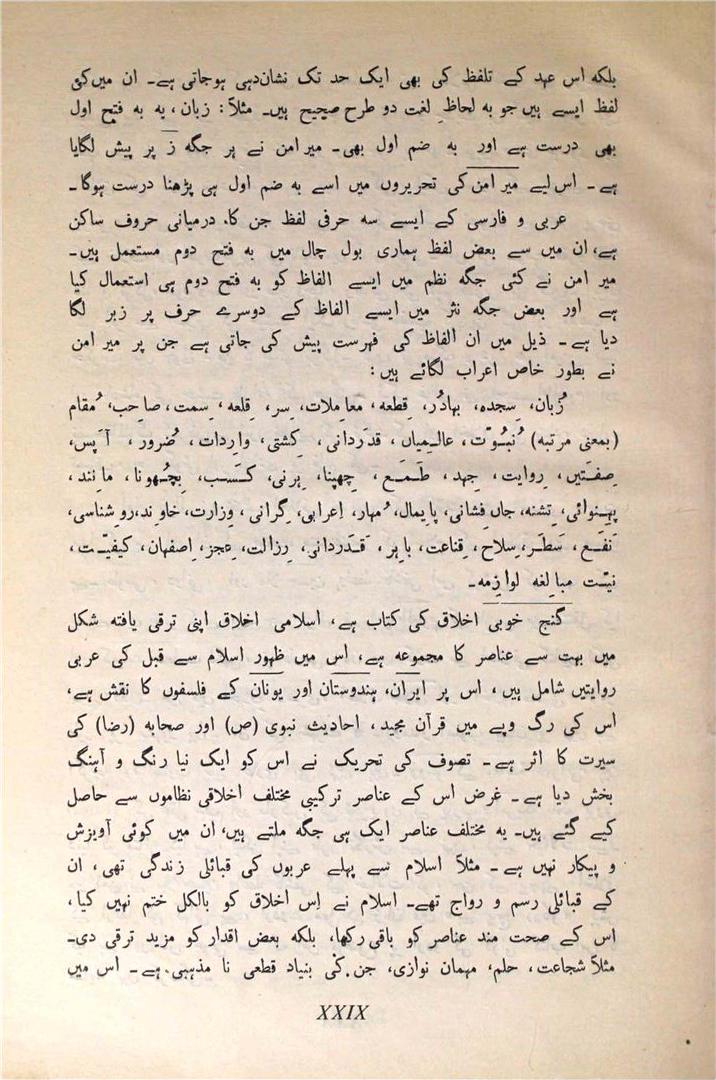 بلکہ اس عہد کے تلفظ کی بھی ایک حد تک نشان‌دہی ہوجاتی ہے۔ ان میں کئی
لفظ ایسے ہیں جو بہ لحاظِ لغت دو طرح صحیح ہیں۔ مثلاً: زبان، یہ بہ فتح اول
بھی درست ہے اور بہ ضم اول بھی۔ میر امن نے ہر جگہ ز پر پیش لگایا
ہے۔ اس لیے میر امن کی تحریروں میں اسے بہ ضم اول ہی پڑھنا درست ہوگا۔
عربی و فارسی کے ایسے سہ حرفی لفظ جن کا درمیانی حروف ساکن
ہے، ان میں سے بعض لفظ ہماری بول چال میں بہ فتح دوم مستعمل ہیں۔
میر امن نے کئی جگہ نظم میں ایسے الفاظ کو بہ فتح دوم ہی استعمال کیا
ہے اور بعض جگہ نثر میں ایسے الفاظ کے دوسرے حرف پر زبر لگا
دیا ہے۔ ذیل میں ان الفاظ کی فہرست پیش کی جاتی ہے جن پر میر امن
نے بطور خاص اعراب لگائے ہیں:
زُبان، سجدہ، بہادُر، قِطعہ، معامِلات، سِر، قِلعہ، سِمت، صاحِب، مُقام
(بمعنی مرتبہ) نُبُوّت، عالِمِیاں، قدردانی، کِشتی، وارِدات، ضُرور، آپَس،
صِفتیں، رِوایت، جِہد، طَمَع، چِھپنا، ہِرنی، کَسَب، بِچُھونا، مانِند،
پہنوائی، تِشنہ، جاں فِشانی، پایمال، مُہار، اِعرابی، گِرانی، وِزارت، خاوِند، روشناسی،
نَفَع، سَطَر، سِلاح، قِناعت، باہَر، قَدَردانی، رِزالت، عِجز، اِصفہان، کیفیّت،
نیّت مبالِغہ لوازِمہ۔
گنج خوبی اخلاق کی کتاب ہے، اسلامی اخلاق اپنی ترقی یافتہ شکل
میں بہت سے عناصر کا مجموعہ ہے، اس میں ظہور اسلام سے قبل کی عربی
روایتیں شامل ہیں، اس پر ایران، ہندوستان اور یونان کے فلسفوں کا نقش ہے،
اس کی رگ وپے میں قرآن مجید، احادیث نبوی (ص) اور صحابہ (رضا) کی
سیرت کا اثر ہے۔ تصوف کی تحریک نے اس کو ایک نیا رنگ و آہنگ
بخش دیا ہے۔ غرض اس کے عناصر ترکیبی مختلف اخلاقی نظاموں سے حاصل
کیے گئے ہیں۔ یہ مختلف عناصر ایک ہی جگہ ملتے ہیں، ان میں کوئی آویزش
و پیکار نہیں ہے۔ مثلاً اسلام سے پہلے عربوں کی قبائلی زندگی تھی، ان
کے قبائلی رسم و رواج تھے۔ اسلام نے اِس اخلاق کو بالکل ختم نہیں کیا،
اس کے صحت مند عناصر کو باقی رکھا، بلکہ بعض اقدار کو مزید ترقی دی۔
مثلاً شجاعت، حلم، مہمان نوازی، جن کی بنیاد قطعی نا مذہبی ہے۔ اس میں
XXIX